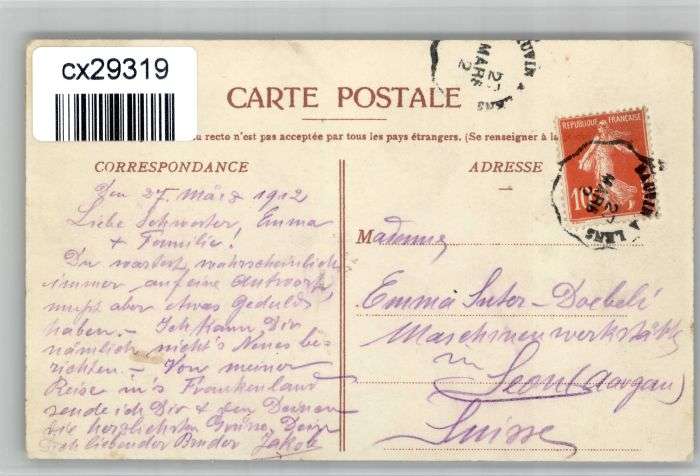 cx29319
CARTE POSTALE
u recto n'est pas acceptée par tous les pays étrangers. (Se renseigner à la
CORRESPONDANCE
ADRESSE
RÉPUBLIQUE FRANÇAISE
10
MARS
LENS
MARS
LENS
Den 27. März 1912
Liebe Schwester, Emma
+ Familie!
Du wartest wahrscheinlich
immer auf eine Antwort,
mußt aber etwas Geduld
haben. – Ich kann Dir
nämlich nicht's Neues be-
richten. – Von meiner
Reise in's Frankenland
sende ich Dir + den Deinen
die herzlichsten Grüsse, Dein
Dich liebender Bruder Jakob
Madame
Emma Suter-Doebeli
Maschinenwerkstätte
in
Seon (Aargau)
Suisse